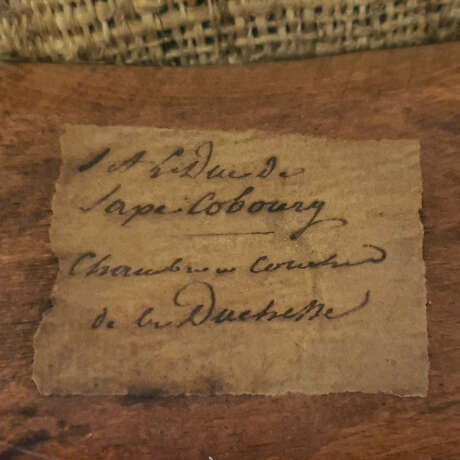 S A Le Duc de
Saxe Cobourg
Chambre a Coucher
de la Duchesse